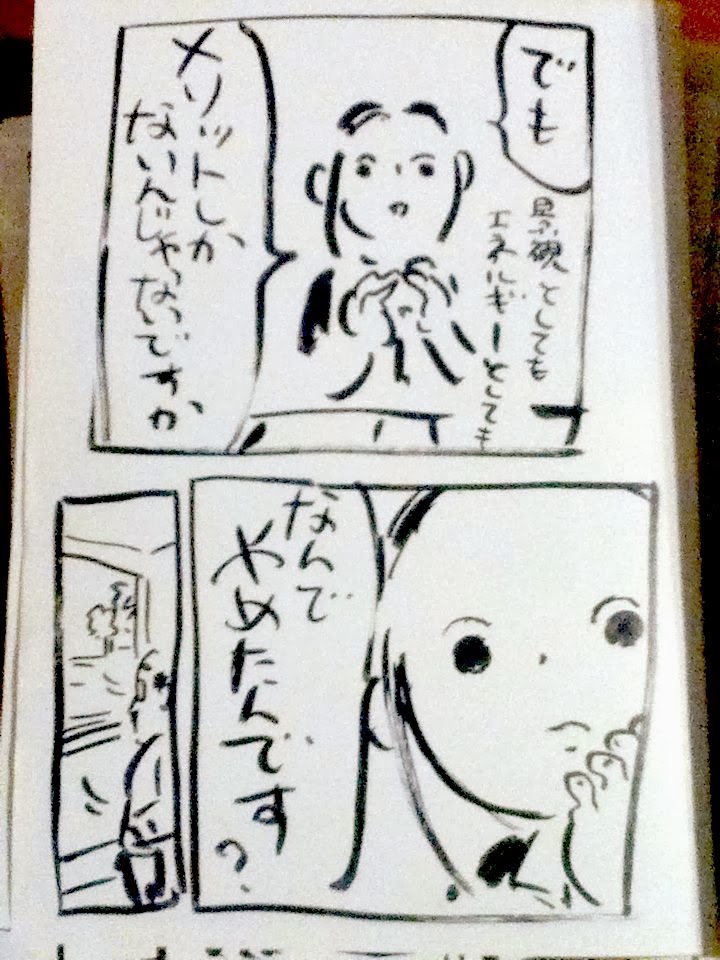 でも
景観としても
エネルギーとしても
メリットしか
ないんじゃないですか
なんで
やめたんです
?